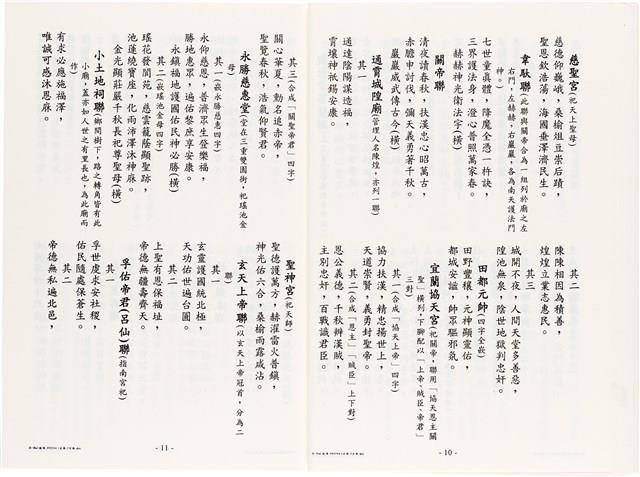 慈聖宮(祀天上聖母)
慈德仰巍峨，桑榆俎豆崇后蹟，
聖恩欽浩蕩，海國垂澤濟民生。
韋馱聯(此聯與關帝合為一組列於廟之左
右門，左赫赫，右巖巖，各為南天護法門
神。)
七世童真體，降魔全憑一杵訣，
三界護法身，澄心普照萬家春。
赫赫神光衛法宇(橫)
關帝聯
清夜讀春秋，扶漢忠心昭萬古，
赤膽申討伐，彌天義勇著千秋。
巖巖威武傳古今(橫)
通霄城隍廟(管理人名陳煌，亦列一聯)
其一
通達陰陽謀造福，
霄壤神祇錫安康。
其二
陳陳相因為積善，
煌煌立業志惠民。
其三
城開不夜，人間天堂多善惡，
隍池無泉，陰世地獄判忠奸。
田都元帥(四字全嵌)
田野豐穰，元神顯靈佑，
都城安謐，帥眾驅邪氛。
宜蘭協天宮(祀關帝，聯用「協天恩主關
聖」橫列，下聯配以「上帝、賊臣、帝君」
三對)
其一(合成「協天上帝」四字)
協力扶漢，精忠揚世上，
天道崇賢，義勇封聖帝。
其二(合成「恩主」「賊臣」上下對)
恩公義德，千秋辨漢賊，
主別忠奸，百戰識君臣。
- 10 -
其三(合成「關聖帝君」四字)
關心華夏，勳名追赤帝，
聖覽春秋，浩氣仰賢君。
永勝慈惠堂(堂在三重雙園街，祀瑤池金
母)
其一(嵌永勝慈惠四字)
永仰慈恩，普濟眾生登樂福，
勝地惠眾，遍佑黎庶享安康。
永鎮福地護國佑民神必勝(橫)
其二(嵌瑤池金母四字)
瑤花發閬苑，慈雲籠蔭顯聖跡，
池蓮繞寶座，化雨沛澤沐神庥。
金光顯莊嚴千秋長祀尊聖母(橫)
小土地祠聯(鄉間樹下，路之轉角皆有此
小廟，蓋亦如人世之有里長也，為此廟而
作)
有求必應施福澤，
唯誠可感沐恩庥。
聖神宮(祀天師)
聖德護萬方，赫濯雷火普鎮，
神光佑六合，桑榆雨露咸沾。
玄天上帝聯(以玄天上帝冠首，分為二
聯)
其一
玄靈護國統北極，
天功佑世遍台圓。
其二
上聖有恩保福址，
帝德無疆壽齊天。
孚佑帝君(呂仙)聯(指南宮祀)
其一
孚世虔求安社稷，
佑民隨處保蒼生。
其二
帝德無私遍北邑，
- 11 -